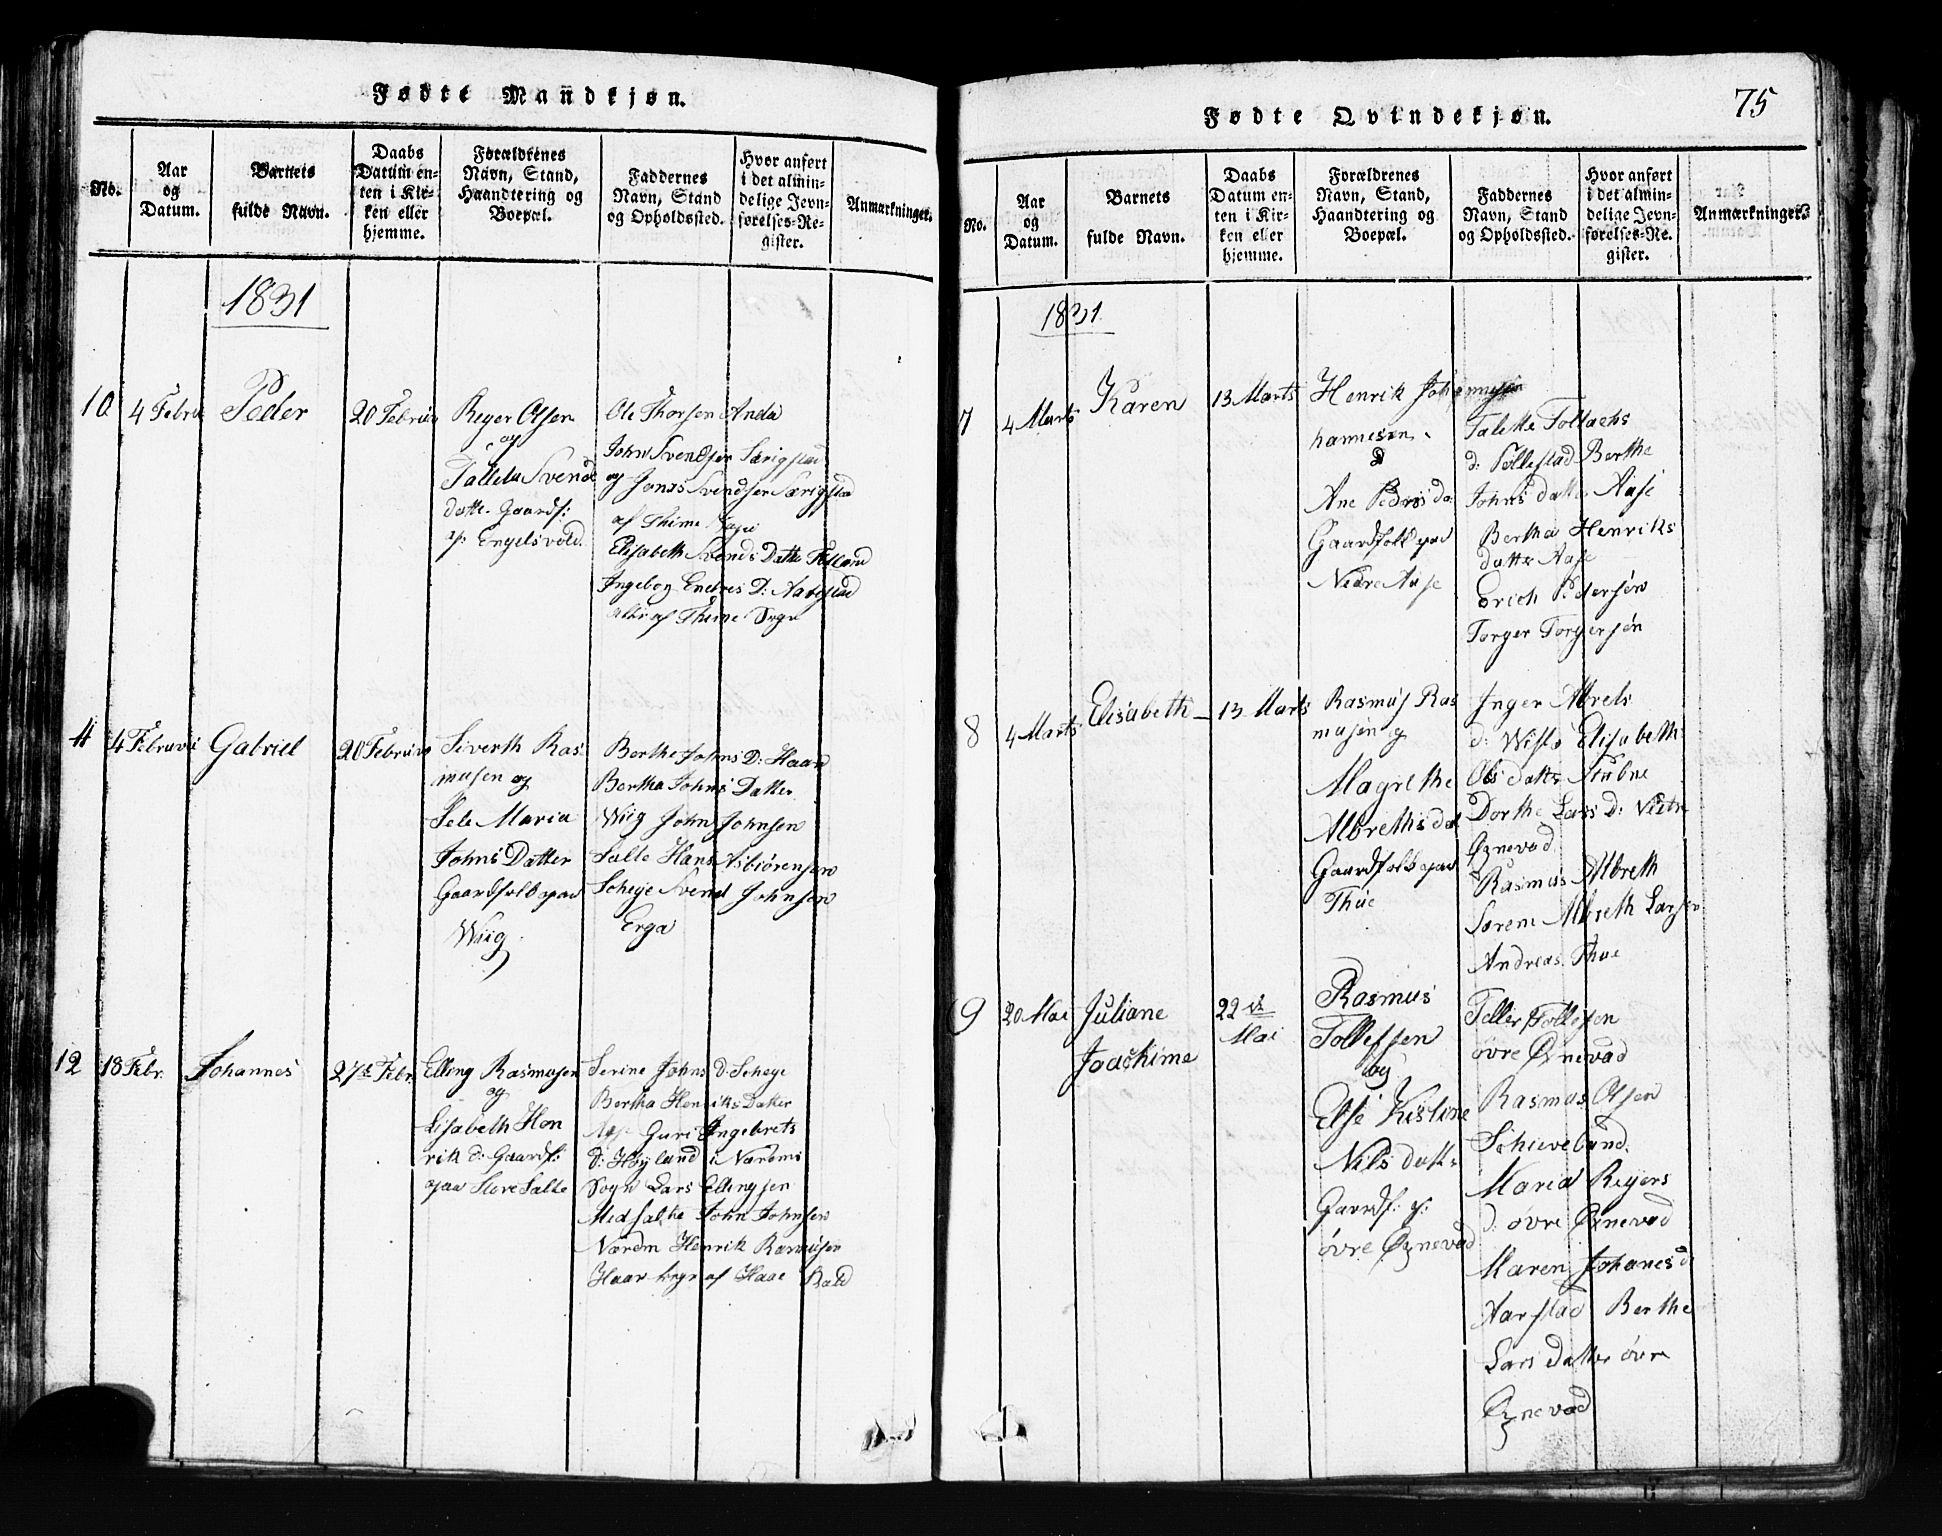 Fødte Mandkjøn.
No.
Aar
og
Datum.
Barnets
fulde Navn.
Daabs
Datum en-
ten i Kir-
ken eller
hjemme.
Forældrenes
Navn, Stand,
Haandtering og
Boepæl.
Faddernes
Navn, Stand
og Opholdssted.
Hvor anført
i det almin-
delige Jevn-
førelses-Re-
gister.
Anmærkninger.
1831
10
4 Febru
Peder
20 Februar
Reyer Olsen
og
Talleta Svends
datte. Gaardf:
p: Engelsvold.
Ole Thorsen Anda
John Svendsen Særigstad
og Jonas Svendsen Særigstad
af Thime Sogn
Elisabeth Svends Datte
Ingebog Enebres D:
af Thime Sogn
4 Februar
Gabriel
20 Februar
Siverth Ras
musen og
Sele Maria
Johns Datter
Gaardfolk paa
Wiig
Berthe Johns D: Haar
Bertha Johns Datter
Wiig John Johnsen
Salte Hans Asbiørensen
Scheje Svend Johnsen
Erga
12
18 Febr.
Johannes
27de Febr.
Elling Rasmusen
og
Lisabeth Hen
rik d: Gaardf:
paa Store Salte
Serine Johns d: Scheje
Bertha Henriks Datter
Guri Ingebrets
d: Høyland i Nærems
Sogn Lars Ellingsen
Medsalte John Johnsen
Nærem Henrik Rasmusen
Haar
75
Fødte Qvindekjøn.
No.
Aar
og
Datum.
Barnets
fulde Navn.
Daabs
Datum en-
ten i Kir-
ken eller
hjemme.
Forældrenes
Navn, Stand,
Haandtering og
Boepæl.
Faddernes
Navn, Stand
og Opholdssted.
Hvor anført
i det almin-
delige Jevn-
førelses-Re-
gister.
Anmærkninger.
1831
7
4 Marts
Karen
13 Marts
Henrik Jo
hannesen
Ane Peders da
Gaardfolk paa
Nedre Aase
Talette Tollachs
d: Pollestad Berthe
Johns datter Aase
Bertha Henriks
datter Aase
Erich Pedersøn
Torger Torgersøn
8
4 Marts
Elisabeth
13 Marts
Rasmus Ras
musen og
Magrethe
Albreths dat
Gaardfolk paa
Thue
Inger Albrets
d: Elisabeth
Ols datter
Dorthe Lars d: Nedre
Øxnevad
Rasmus Albreth
Sørem Albreth Larsen
Andreas Thue
9
20 Mai
Juliane
Joachime
22de
Mai
Rasmus
Tollefsen
og
Else Kistine
Nils datter
Gaardf: p:
øvre Øxnevad
Teller Tollefsen
øvre Øxnevad
Rasmus Olsen
Schieveland.
Maria Reyers
d: øvre Øxnevad
Maren Johanes d
Harstad Berthe
Lars datter øvre
Øxnevad